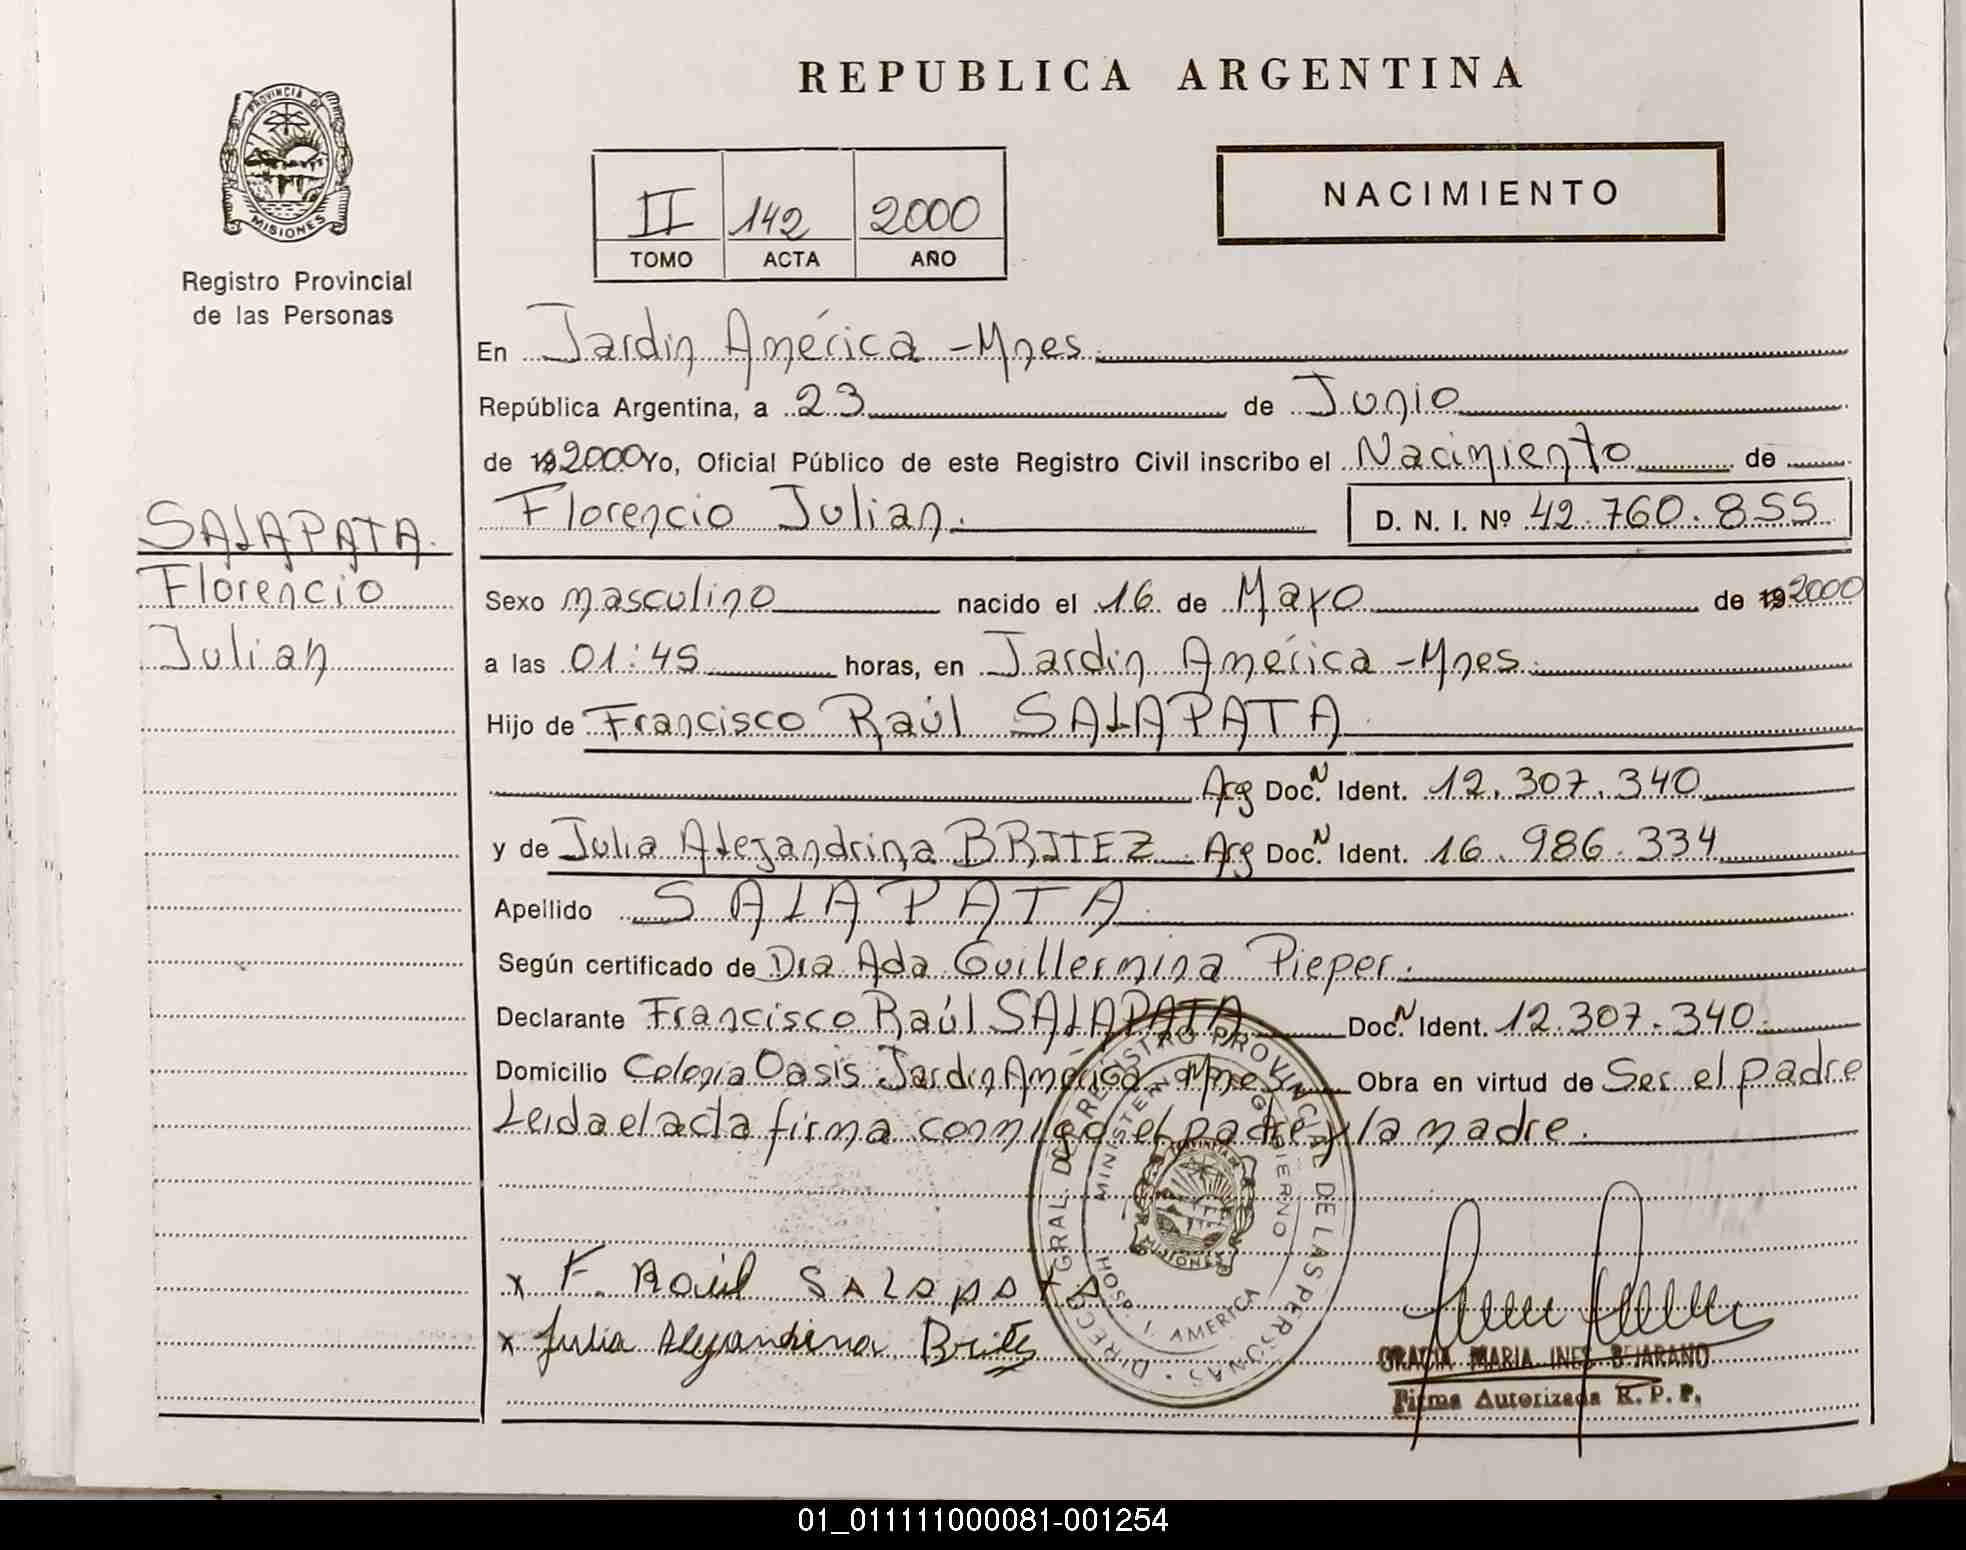 REPUBLICA ARGENTINA
PROVINCIA DE
MISIONES
Registro Provincial
de las Personas
II 142 2000
TOMO ACTA AÑO
NACIMIENTO
En Jardin América - Mnes.
República Argentina, a 23 de Junio
de 19 2000 Yo, Oficial Público de este Registro Civil inscribo el Nacimiento de
Florencio Julian. D. N. I. Nº 42.760.855
SALAPATA.
Florencio
Julian
Sexo masculino nacido el 16 de Mayo de 19 2000
a las 01:45 horas, en Jardin América - Mnes.
Hijo de Francisco Raúl SALAPATA.
Arg Doc. N Ident. 12.307.340
y de Julia Alejandrina BRITEZ. Arg Doc. N Ident. 16.986.334
Apellido SALAPATA.
Según certificado de Dra Ada Guillermina Pieper.
Declarante Francisco Raúl SALAPATA Doc. N Ident. 12.307.340.
Domicilio Colonia Oasis Jardin América Mnes Obra en virtud de Ser el padre
Leida el acta firma conmigo el padre y la madre.
DIREC. GRAL. DE REGISTRO PROVINCIAL DE LAS PERSONAS
MINISTERIO GOBIERNO
PROVINCIA DE
MISIONES
HOSP. J. AMERICA
x F. Raúl SALAPATA
x Julia Alejandrina Britez
GRACIA MARIA INES BEJARANO
Firma Autorizada R. P. P.
01_011111000081-001254